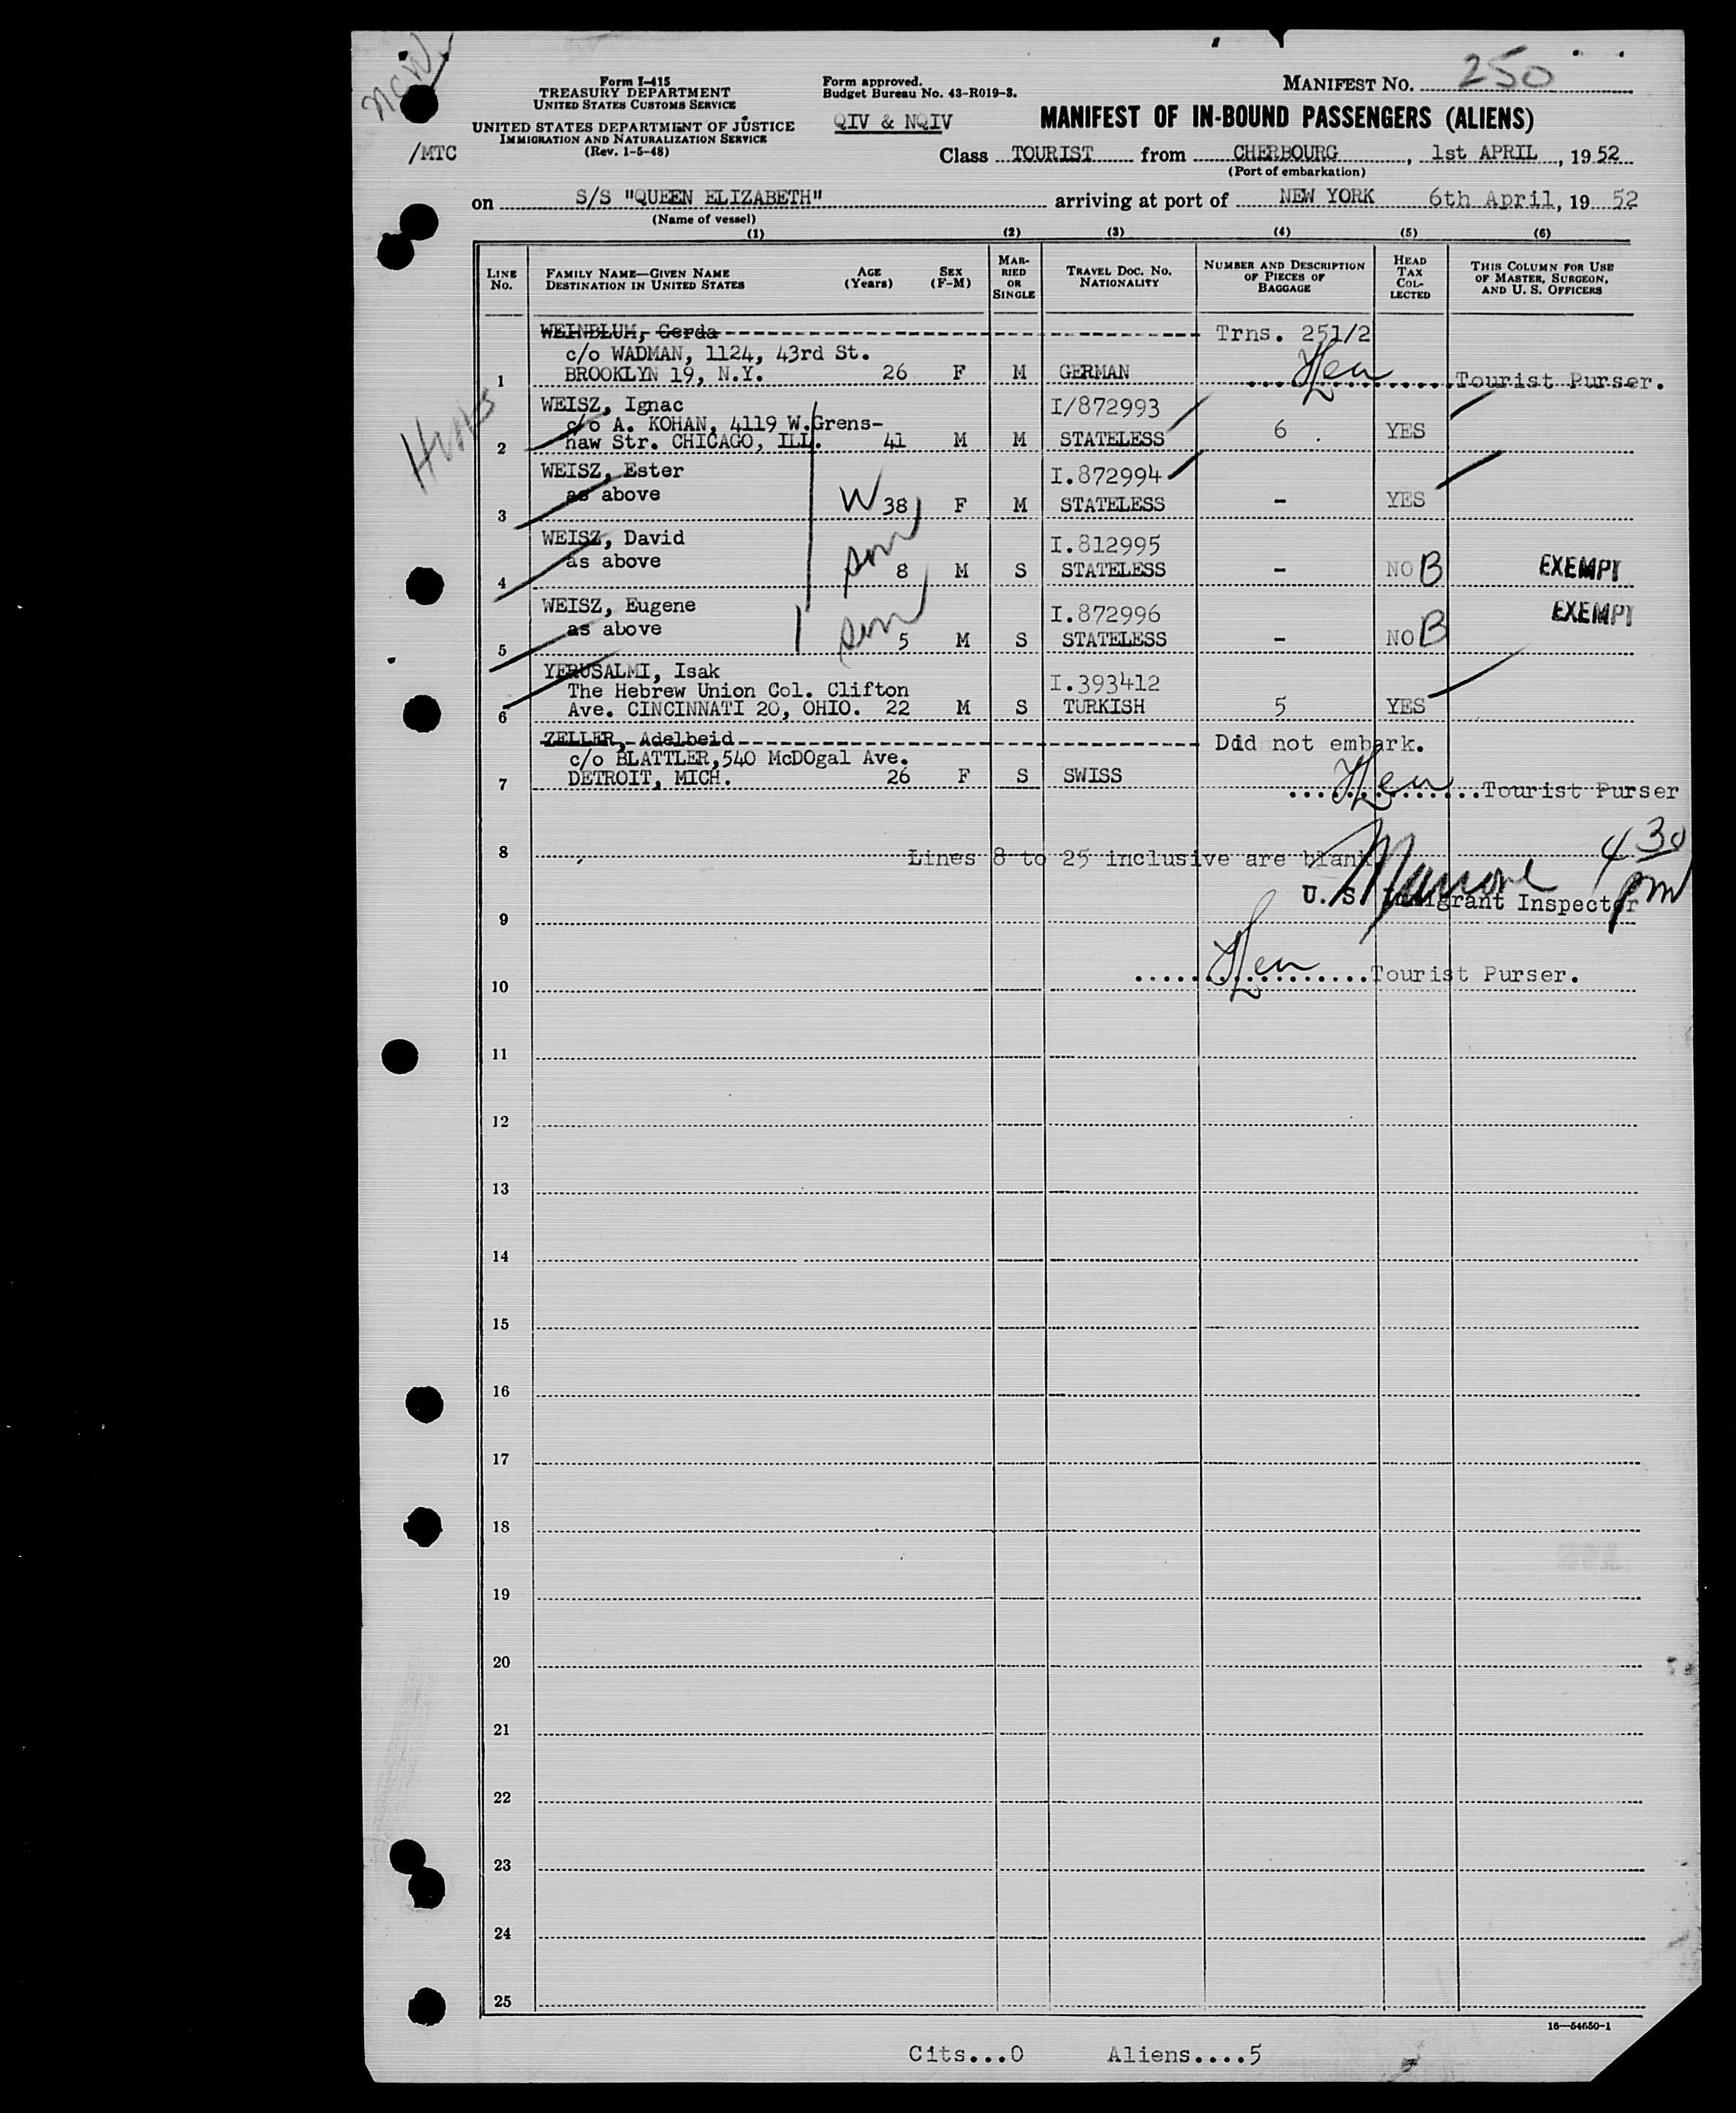 NCW
Form I-415
TREASURY DEPARTMENT
UNITED STATES CUSTOMS SERVICE
UNITED STATES DEPARTMENT OF JUSTICE
IMMIGRATION AND NATURALIZATION SERVICE
(Rev. 1-5-48)
/MTC
Form approved.
Budget Bureau No. 43-R019-3.
QIV & NQIV
MANIFEST NO. 250
MANIFEST OF IN-BOUND PASSENGERS (ALIENS)
Class TOURIST from CHERBOURG, 1st APRIL, 1952
(Port of embarkation)
on S/S "QUEEN ELIZABETH" arriving at port of NEW YORK 6th April, 19 52
(Name of vessel)
(1) (2) (3) (4) (5) (6)
LINE No. FAMILY NAME—GIVEN NAME DESTINATION IN UNITED STATES AGE (Years) SEX (F-M) MARRIED OR SINGLE TRAVEL DOC. NO. NATIONALITY NUMBER AND DESCRIPTION OF PIECES OF BAGGAGE HEAD TAX COLLECTED THIS COLUMN FOR USE OF MASTER, SURGEON, AND U. S. OFFICERS
WEINBLUM, Gerda Trns. 251/2
c/o WADMAN, 1124, 43rd St.
1 BROOKLYN 19, N.Y. 26 F M GERMAN Tourist Purser.
WEISZ, Ignac I/872993
c/o A. KOHAN, 4119 W.Grens-
2 haw Str. CHICAGO, ILL. 41 M M STATELESS 6 . YES
WEISZ, Ester I.872994
as above W
3 38 F M STATELESS - YES
WEISZ, David I.812995
as above son
4 8 M S STATELESS - NO B EXEMPT
WEISZ, Eugene I.872996 EXEMPT
as above son
5 5 M S STATELESS - NO B
YERUSALMI, Isak I.393412
The Hebrew Union Col. Clifton
6 Ave. CINCINNATI 20, OHIO. 22 M S TURKISH 5 YES
ZELLER, Adelbeid Did not embark.
c/o BLATTLER,540 McDOgal Ave.
7 DETROIT, MICH. 26 F S SWISS Tourist Purser
8 Lines 8 to 25 inclusive are blank 4 30 pm
9 U. S. Immigrant Inspector
10 Tourist Purser.
11
12
13
14
15
16
17
18
19
20
21
22
23
24
25
16—54650-1
Cits...0 Aliens....5